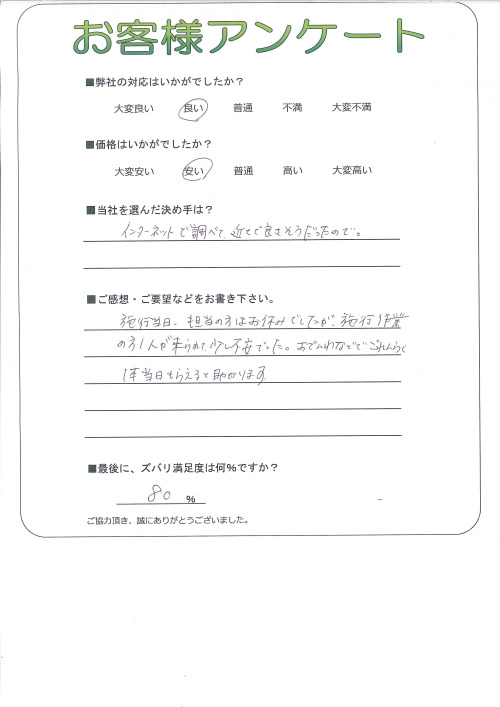 お客様アンケート
■弊社の対応はいかがでしたか?
大変良い 良い 普通 不満 大変不満
■価格はいかがでしたか?
大変安い 安い 普通 高い 大変高い
■当社を選んだ決め手は?
インターネットで調べて、近くで良さそうだったので。
■ご感想・ご要望などをお書き下さい。
施行当日、担当の方はお休みでしたが、施行作業
の方1人が来られて、少し不安でした。おでんわなどでごれんらく
当日もらえると助かります
■最後に、ズバリ満足度は何%ですか?
80 %
ご協力頂き、誠にありがとうございました。